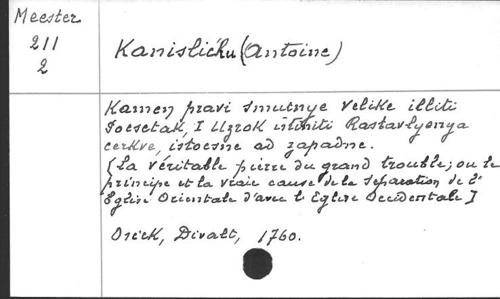 Meester
211
2
Kanislićku (Antoine)
Kamen pravi smutnye velike illiti
Pocsetak, I Uzrok istiniti Rastavlyenya
cerkve, istocsne od zapadne.
[La véritable pierre du grand trouble; ou le
principe et la vraie cause de la séparation de l'
Eglise Orientale d'avec l'Eglise Occidentale]
Osick, Divalt, 1760.